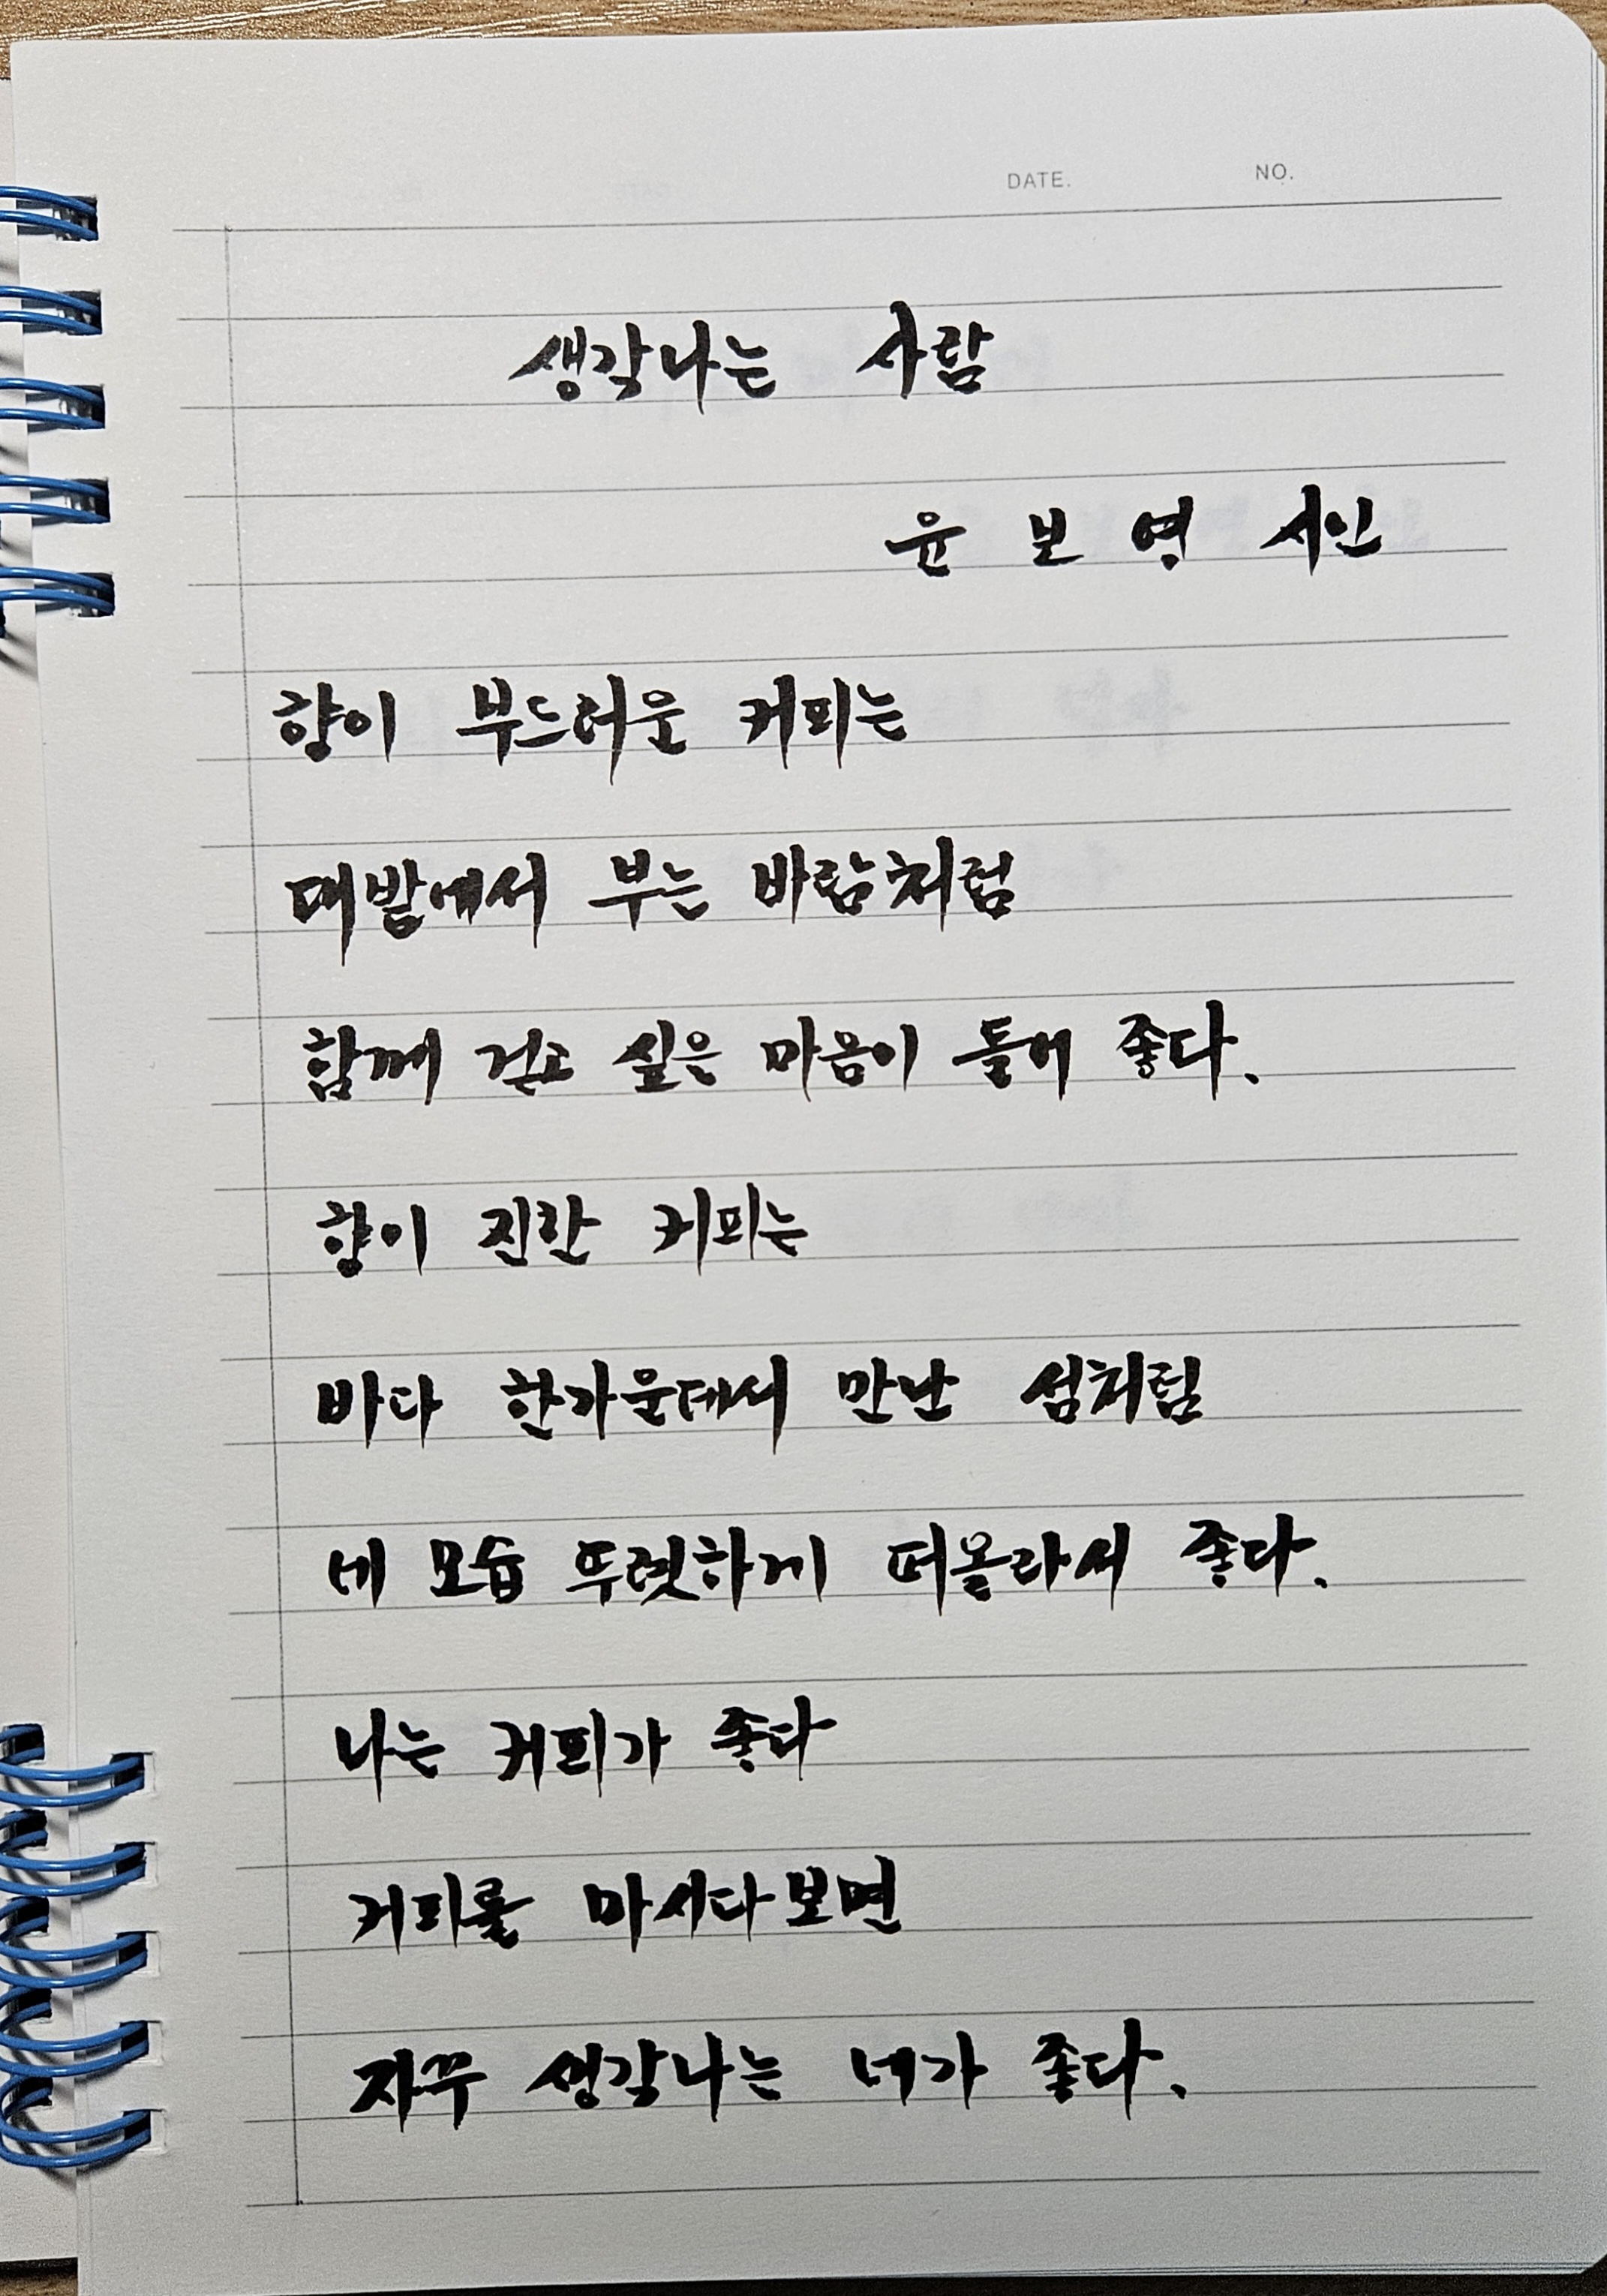 DATE. NO.
생각나는 사람
윤 보 영 시인
향이 부드러운 커피는
대밭에서 부는 바람처럼
함께 걷고 싶은 마음이 들어 좋다.
향이 진한 커피는
바다 한가운데서 만난 섬처럼
네 모습 뚜렷하게 떠올라서 좋다.
나는 커피가 좋다
커피를 마시다보면
자꾸 생각나는 네가 좋다.